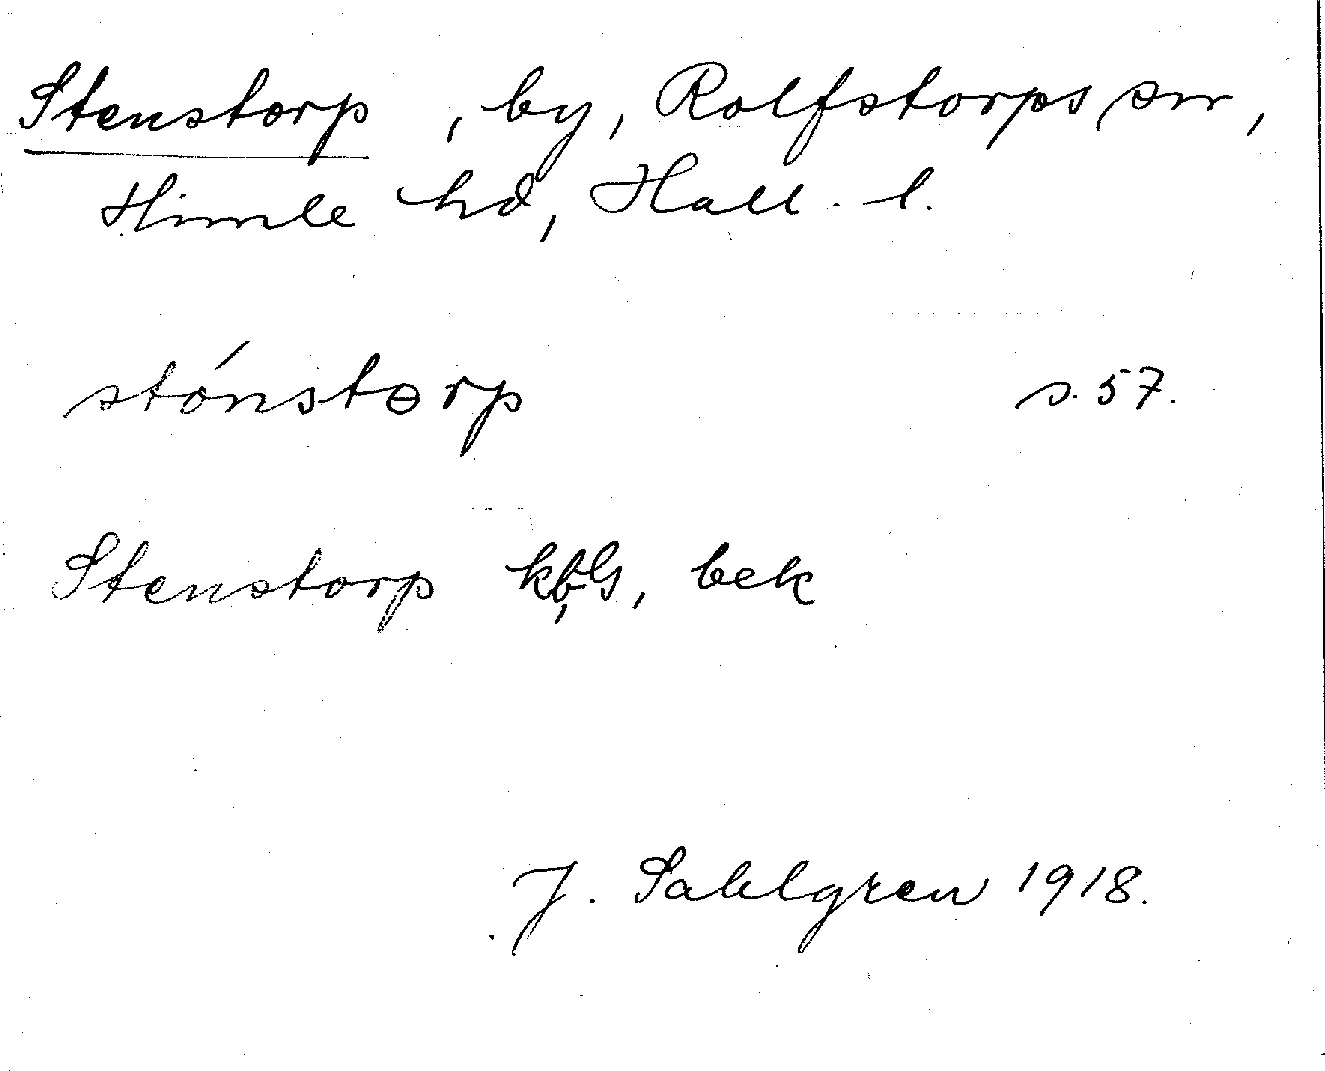 Stenstorp, by, Rolfstorps sn,
Himle hd, Hall. l.
stónstɵrp s. 57.
Stenstorp kbG, bek
J. Sahlgren 1918.